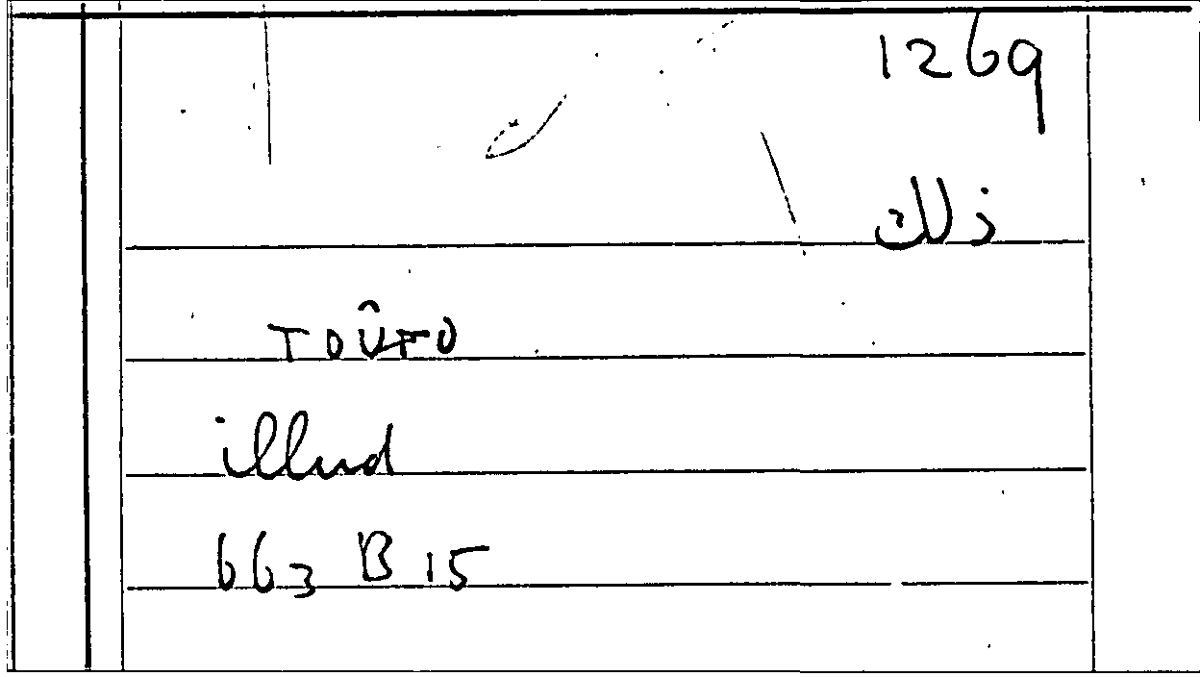 1269
ذلك
τοῦτο
illud
663 B 15